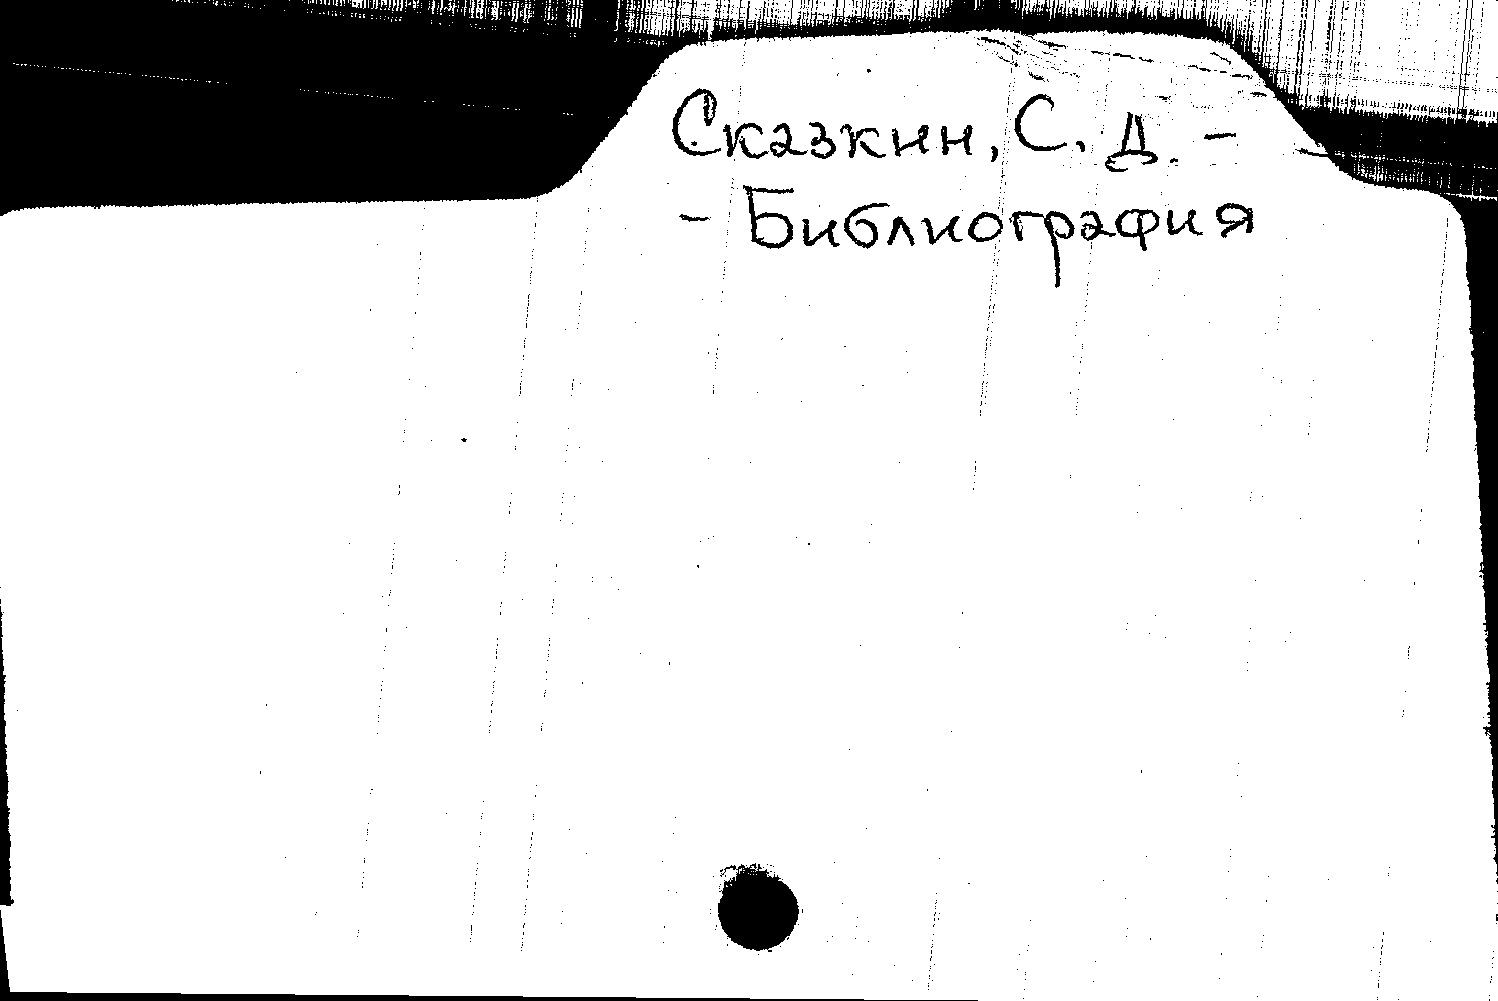 Сказкин, С. Д. –
– Библиография